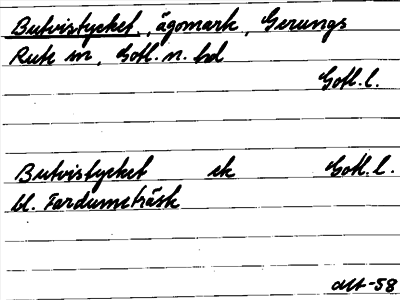 Butvistycket, ägomark, Gerungs
Rute sn, Gotl. n. hd
Gotl. l.
Butvistycket ek Gotl. l.
bl. Fardumeträsk
alt -58